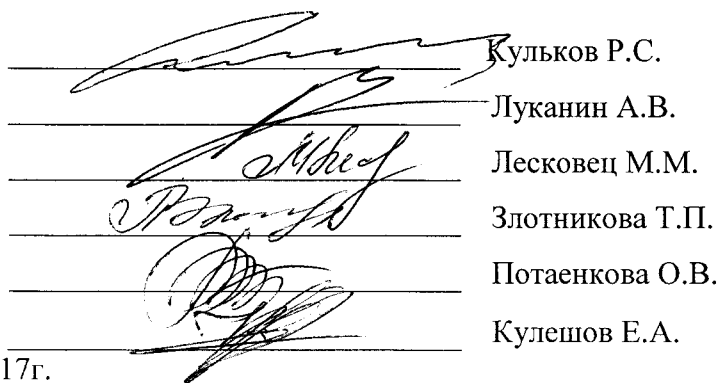 Кульков Р.С.
Луканин А.В.
Лесковец М.М.
Злотникова Т.П.
Потаенкова О.В.
Кулешов Е.А.
17г.